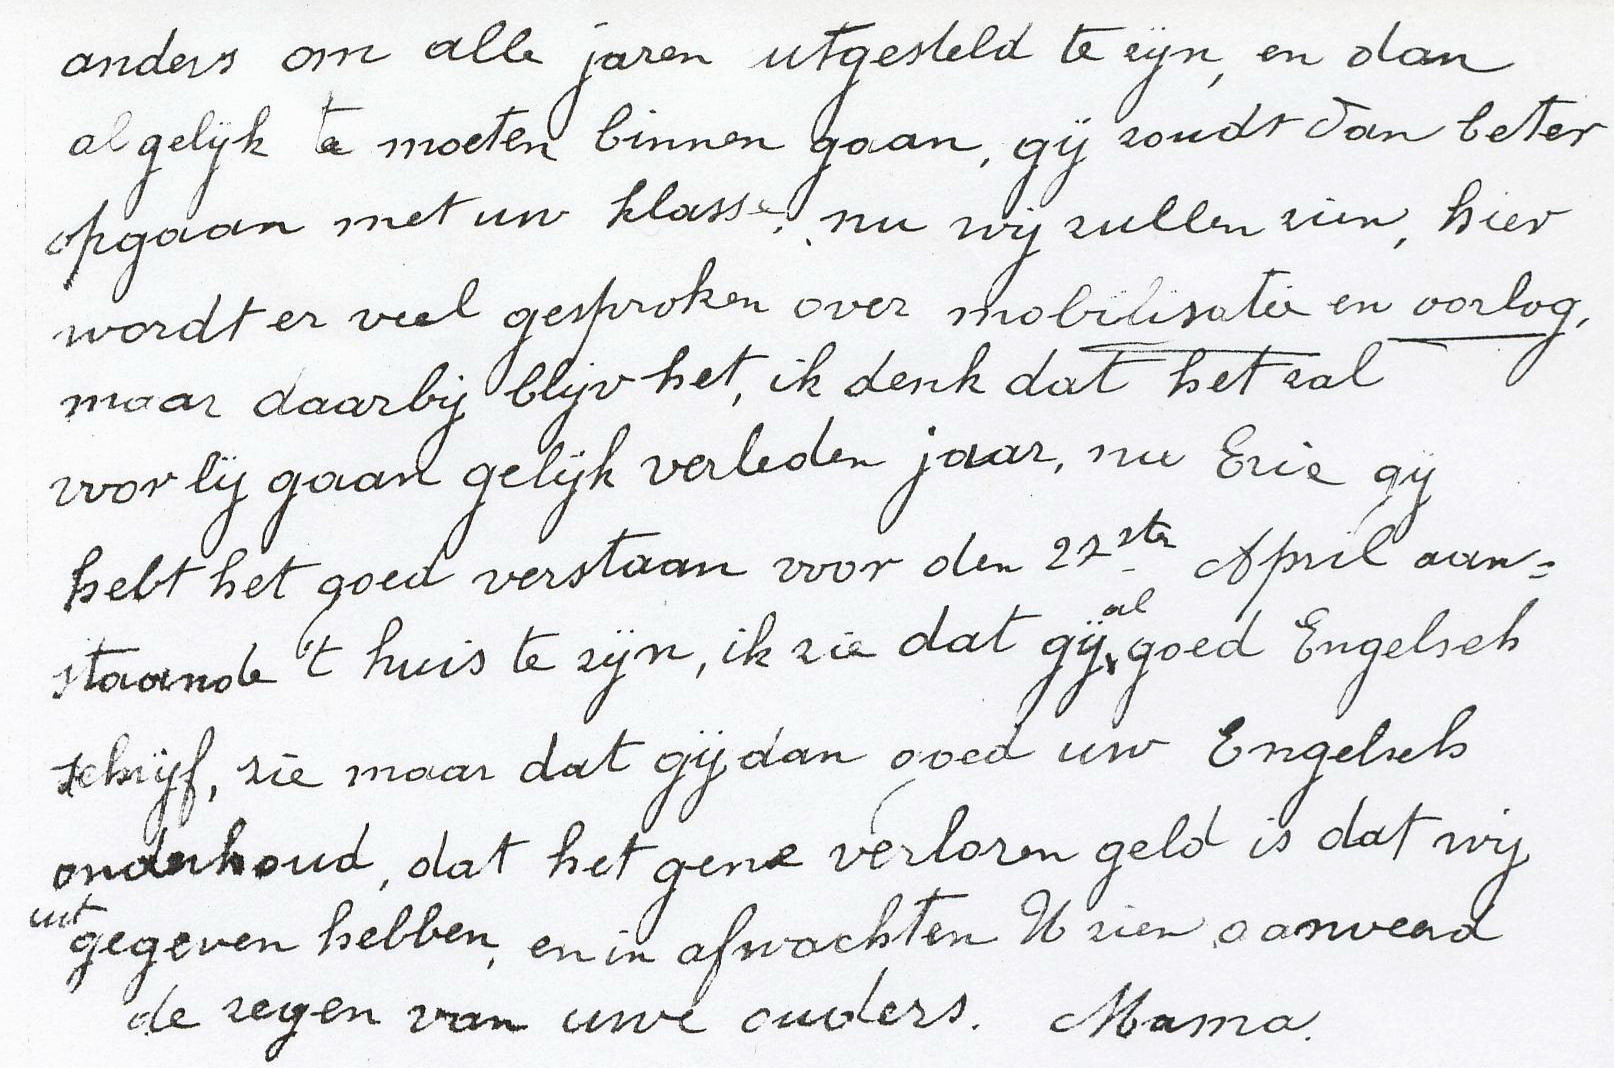 anders om alle jaren utgesteld te zijn, en dan
al gelijk te moeten binnen gaan, gij zoudt dan beter
opgaan met uw klasse, nu wij zullen zien, hier
wordt er veel gesproken over mobilisatie en oorlog,
maar daarbij blijv het, ik denk dat het zal
voorbij gaan gelijk verleden jaar, nu Eric gij
hebt het goed verstaan voor den 22ste April aan=
staande 't huis te zijn, ik zie dat gij al goed Engelsch
schrijf, zie maar dat gij dan goed uw Engelsch
onderhoud, dat het gene verloren geld is dat wij
uitgegeven hebben, en in afwachten U zien aanveerd
de zegen van uwe ouders. Mama.